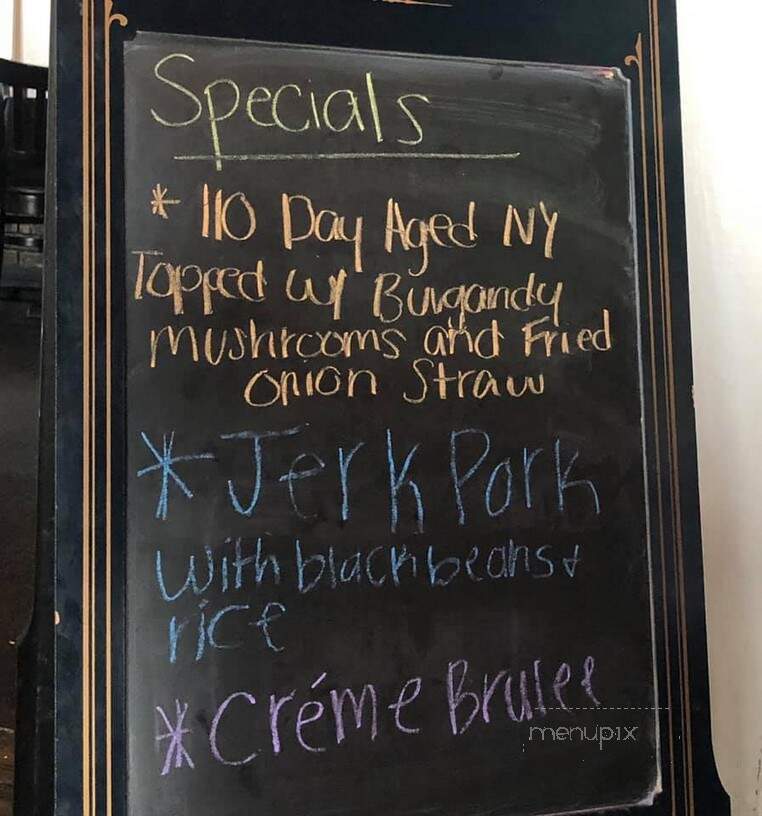 Specials
* 110 Day Aged NY
Topped w/ Burgandy
mushrooms and Fried
onion Straw
* Jerk Pork
with black beans &
rice
* Créme Brulee
menupix